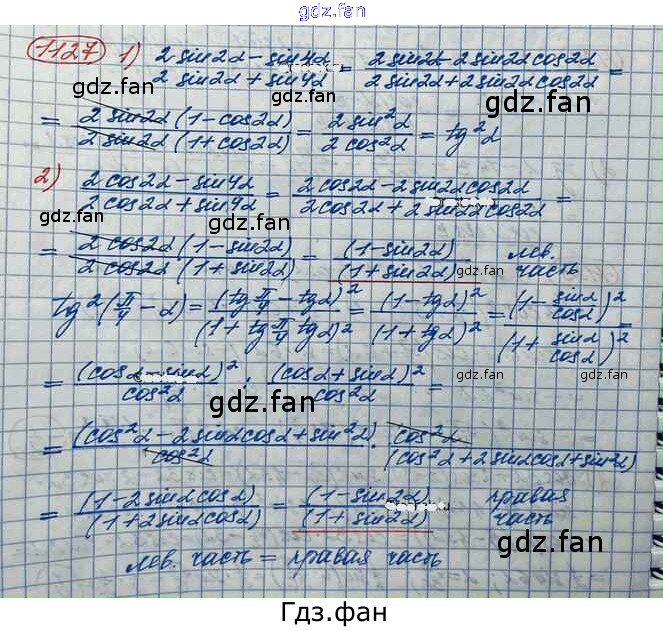 gdz.fan
1127 1) (2 sin2α - sin4α)/(2 sin2α + sin4α) = (2 sin2α - 2 sin2α cos2α)/(2 sin2α + 2 sin2α cos2α) =
gdz.fan gdz.fan
= (2 sin2α (1 - cos2α))/(2 sin2α (1 + cos2α)) = (2 sin²α)/(2 cos²α) = tg²α
gdz.fan gdz.fan
2) (2 cos2α - sin4α)/(2 cos2α + sin4α) = (2 cos2α - 2 sin2α cos2α)/(2 cos2α + 2 sin2α cos2α) =
gdz.fan gdz.fan
= (2 cos2α (1 - sin2α))/(2 cos2α (1 + sin2α)) = (1 - sin2α)/(1 + sin2α) лев. часть
gdz.fan gdz.fan
tg²(π/4 - α) = (tg π/4 - tgα)²/(1 + tg π/4 tgα)² = (1 - tgα)²/(1 + tgα)² = (1 - sinα/cosα)²/(1 + sinα/cosα)² =
= (cosα - sinα)²/cos²α : (cosα + sinα)²/cos²α =
gdz.fan gdz.fan
gdz.fan
= (cos²α - 2 sinα cosα + sin²α)/cos²α · cos²α/(cos²α + 2 sinα cosα + sin²α)
gdz.fan gdz.fan
= (1 - 2 sinα cosα)/(1 + 2 sinα cosα) = (1 - sin2α)/(1 + sin2α) правая часть
gdz.fan gdz.fan gdz.fan
лев. часть = правая часть
gdz.fan gdz.fan
Гдз.фан